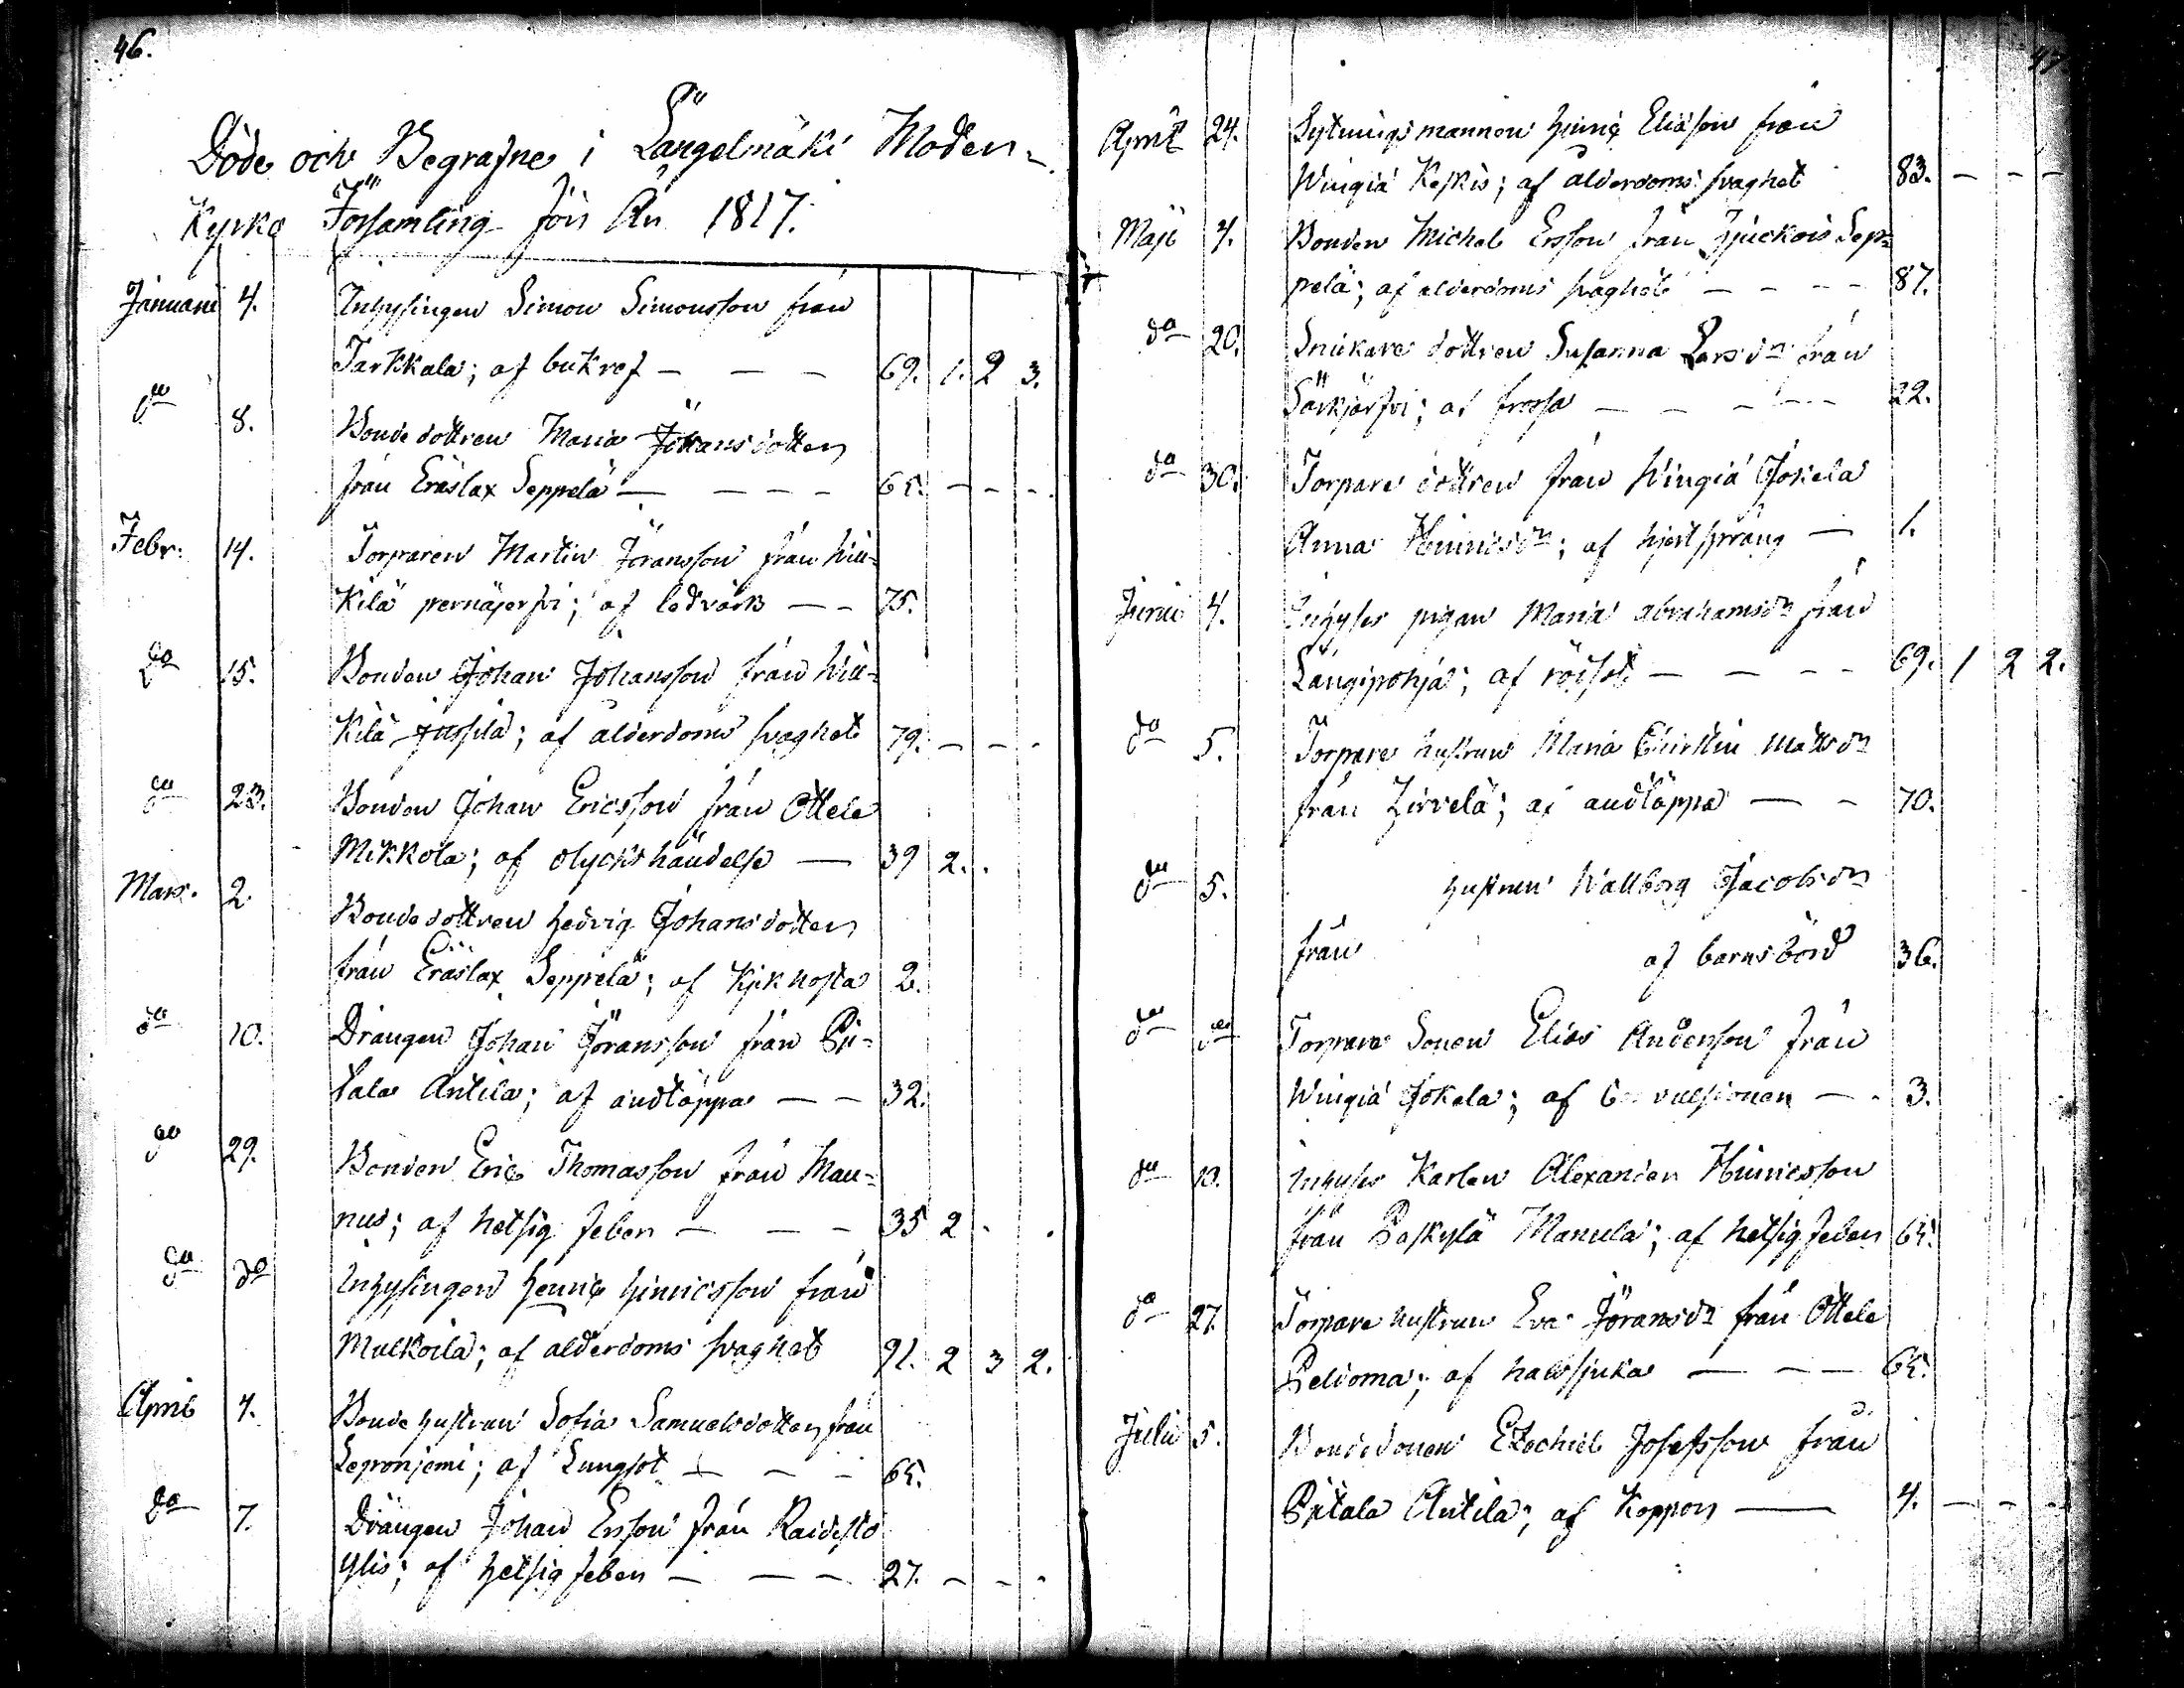 46.
Döde och Begrafne i Längelmäki Moder-
Kyrko Församling för År 1817.
Januarii 4. Inhysingen Simon Simonsson från
Tarkkala; af bukref — — — 69. 1. 2 3.
do 8. Bonde dottren Maria Johansdotter
från Eräslax Seppelä — — — — 65. — — —
Febr. 14. Torparen Martin Jöransson från Hiu-
kilä pernäjerfvi; af ledvärk — — 75.
do 15. Bonden Johan Johansson från Hiu-
kilä Jussila; af ålderdoms svaghet 79. — — -
do 23. Bonden Johan Ericsson från Ottele
Mikkola; af olyckshändelse — 39 2.
Mars. 2. Bondedottren Hedvig Johansdotter
från Eräslax Seppelä; af Kikhosta 2.
do 10. Drängen Johan Jöransson från Pii-
tala Antila; af andtäppa — — 32.
do 29. Bonden Eric Thomasson från Man-
nus; af hetsig feber — — — 35 2
do do Inhysingen Henric Hinricsson från
Mulkoila; af ålderdoms svaghet 91. 2 3 2.
April 4. Bonde hustrun Sofia Samuelsdotter från
Leponjemi; af Lungsot — — — 65.
do 7. Drängen Johan Ersson från Raidisto
Ylis; af hetsig feber — — — 27. — — -
47
April 24. Sytningsmannen Hinric Eliasson från
Wingiä Keskis; af ålderdoms svaghet 83. — — —
Maji 4. Bonden Michel Ersson från Sep-
pelä; af ålderdoms svaghet — — — — 87.
do 20. Snickare dottren Susanna Larsdr från
Särkjärfvi; af frossa — — — — 22.
do 30. Torpare dottren från Wingiä Jokela
Anna Hinricsdr; af hjertsprång — 1.
Junii 4. Inhyses pigan Maria Abrahamsdr från
Längipohja; af rötsot — — — — 69. 1 2 2.
do 5. Torpare hustrun Maria Christin Mattsdr
från Hirvelä; af andtäppa — — 70.
do 5. hustrun Wallborg Jacobsdr
från af barnsbörd 36.
do do Torpare Sonen Elias Andersson från
Wingiä Jokela; af Convulsioner — - 3.
do 10. Inhyses Karlen Alexander Hinricsson
från Paskylä Manula; af hetsig feber 65.
do 27. Torpare hustrun Eva Jöransdr från Ottele
Peltoma; af halssjuka — — — 65.
Julii 5. Bondesonen Ezechiel Josefsson från
Piitala Antila; af Koppor — 4. — — —